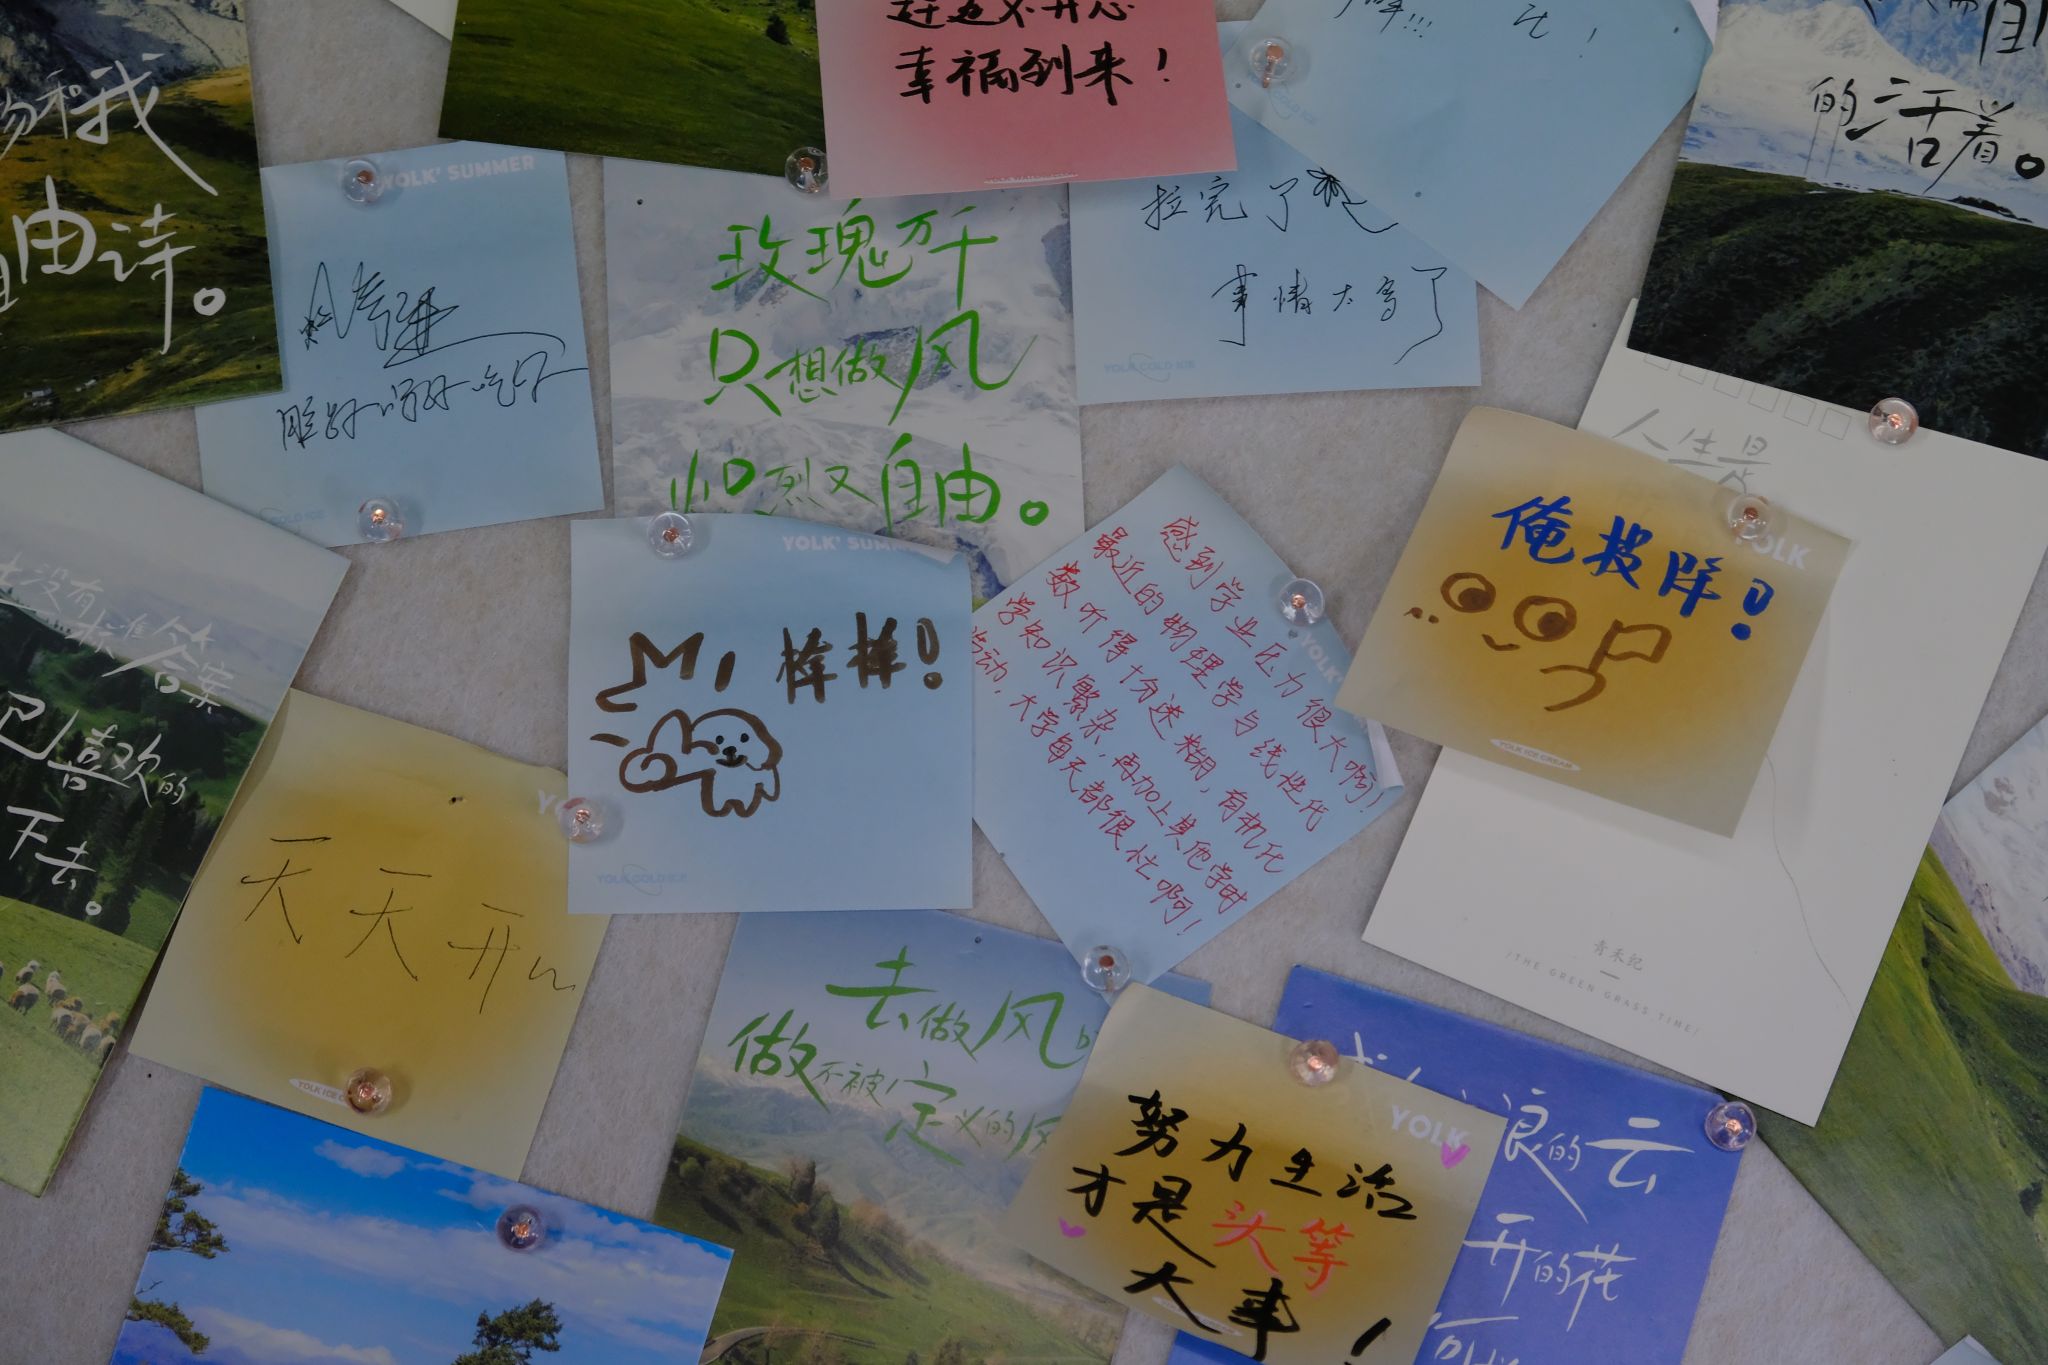 和我
自由诗。
YOLK' SUMMER
幸福到来！
的活着。
玫瑰万千
只想做风
炽烈又自由。
拉完了
事情大写了
YOLK COLD ICE
人生是
没有标准答案
喜欢的
下去。
YOLK' SUMM
棒棒！
YOLK COLD ICE
感到学业压力很大啊！
最近的物理学与线性代
数听得十分迷糊，有机化
学知识繁杂，再加上其他学时
活动，大学每天都很忙啊！
YOLK'
俺投降！
YOLK
YOLK ICE CREAM
青禾纪
/THE GREEN GRASS TIME/
天天开心
去做风
做不被定义的风
YOLK
努力生活
才是头等
大事！
浪的云
开的花